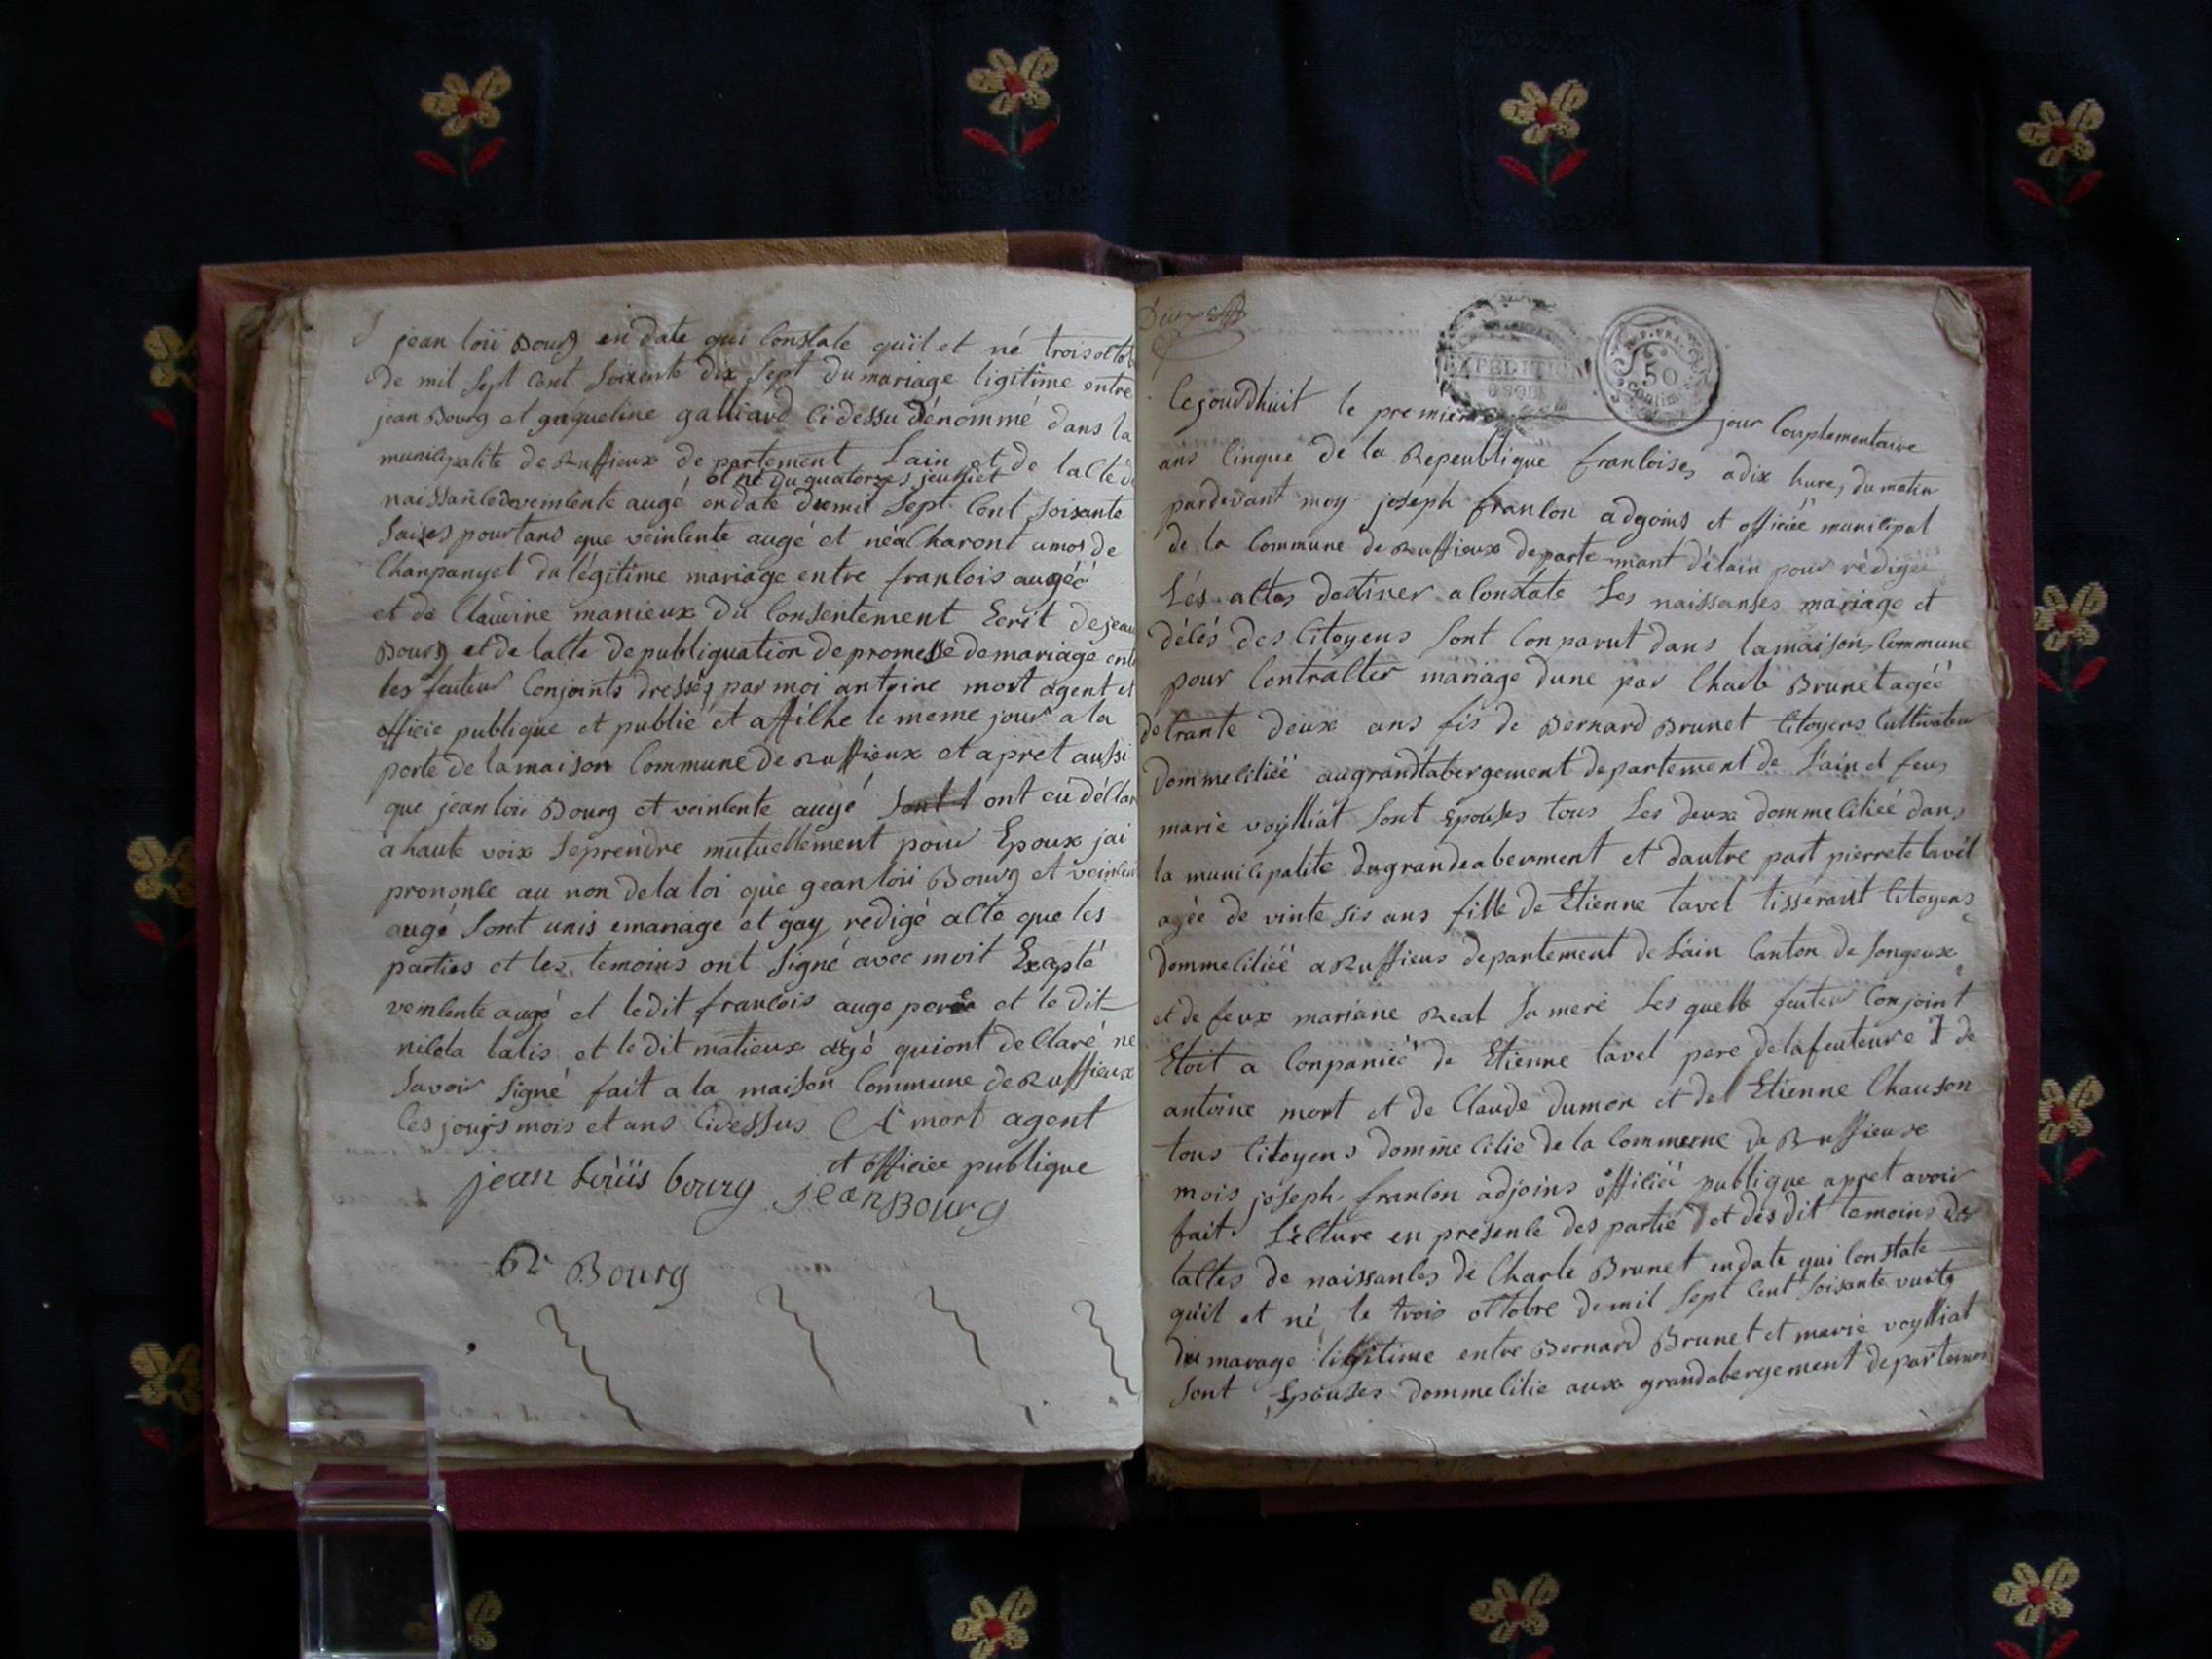 jean loïi Bourg en date qui Constate quil et né trois octob
de mil Sept Cent Soixente dix Sept du mariage ligitime entre
jean Bourg et gaqueline galliard Cidessu dénommé dans la
municipalite de Ruffieux de partement Lain et de lacte de
et né du quatorzes jeulliet
naissance veincente augé en date de mil Sept Cent Soisante
Saises pourtans que veincente augé et né a Charont amos de
Chanpanyet du légitime mariage entre francois augéé
et de Claudine manieux du Consentement Ecrit de jean
Bourg et de lacte de publiquation de promesse de mariage entr
les feuteur Conjoints dressés par moi antoine mort agent et
officie publique et publié et affilhe le meme jour a la
porte de la maison Commune de Ruffieux et apret aussi
que jean loïi Bourg et veincente augé ont eu déclar
a haute voix Seprendre mutuellement pour Epoux jai
prononce au non de la loi que gean loïi Bourg et veincen
augé Sont unis emariage et gay redigé acte que les
parties et les temoins ont Signé avec moit Exapté
veincente augé et ledit francois auge pere et le dit
nicola et le dit matieux agé quiont declaré ne
Savoir Signé fait a la maison Commune de Ruffieux
les jours mois et ans Cidessus A mort agent
et officiee publique
jean Loüis bourg jean Bourg
Bourg
EXPÉDITION
50
Cejourdhuit le premier jour Couplementaire
ans Cinque de la Republique francoises a dix hures du matin
pardevant moy joséph franCon adgoins et officiée municipal
de la Commune de Ruffieux departemant délain pour rédigée
Lés actes destiner a Constate Les naissanses mariage et
décés des Citoyens Sont Conparut dans la maison Commune
pour Contracter mariage dune par Charle Brunet agéé
de trante deux ans fis de Bernard Brunet Citoyens Cultivateu
Dommeciliéé au grandtabergement departement de Lain et feus
marie voylliat Sont Epouses tous Les deux dommeciliéé dans
la municipalite du grandeaberment et dautre part pierrete tavel
agée de vinte sis ans fille de Etienne tavel tisserant Citoyens
dommeciliéé a Ruffieus departement de Lain Canton de Songeux
et de feux mariane Real Sa mere Les quelle feuteur Conjoint
Etoit a Conpaniéé de Etienne tavel pere de la feuteure et de
antoine mort et de Claude dumon et de Etienne Chauson
tous Citoyens dommecilie de la Commeune de Ruffieuxe
mois joseph franCon adjoins officiéé publique apret avoir
fait Lecture en presence des partie et des dit temoins der
lactes de naissances de Charle Brunet en date qui Constate
quil et né le trois octobre de mil Sept Cent Soisante
du marage ligitime entre Bernard Brunet et marie voylliat
Sont Epouses dommecilie aux grandabergement departemen